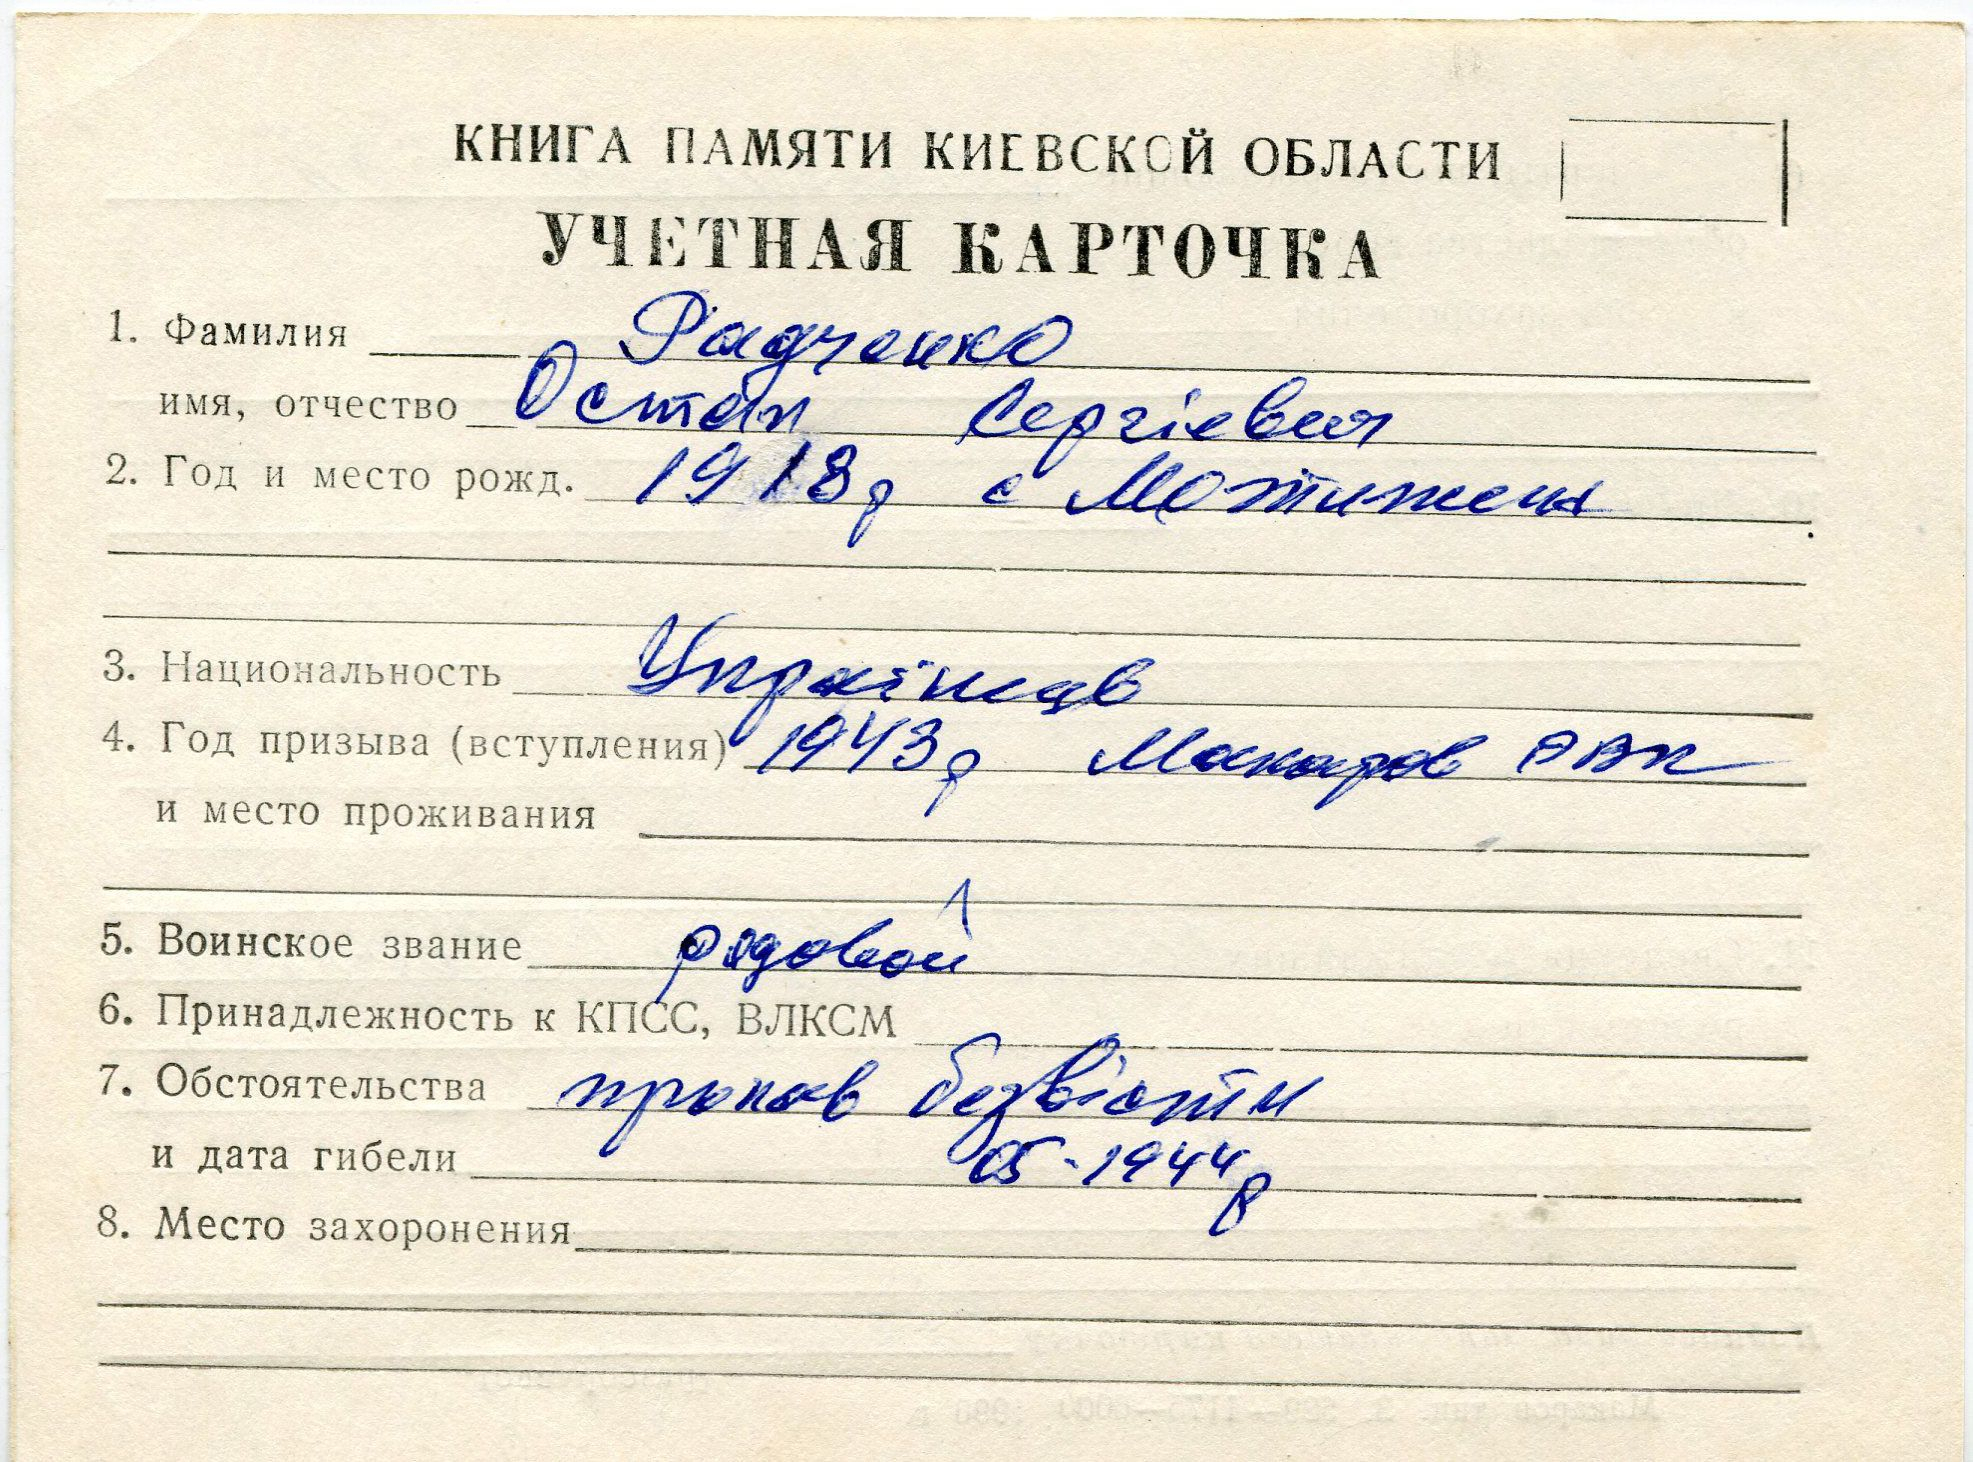 КНИГА ПАМЯТИ КИЕВСКОЙ ОБЛАСТИ
УЧЕТНАЯ КАРТОЧКА
1. Фамилия Радченко
имя, отчество Остап Сергієвич
2. Год и место рожд. 1918р с Мотижени
3. Национальность Українцв
4. Год призыва (вступления) 1943р Макаров РВК
и место проживания
5. Воинское звание рядовой
6. Принадлежность к КПСС, ВЛКСМ
7. Обстоятельства пропав безвісти
и дата гибели 05-1944р
8. Место захоронения